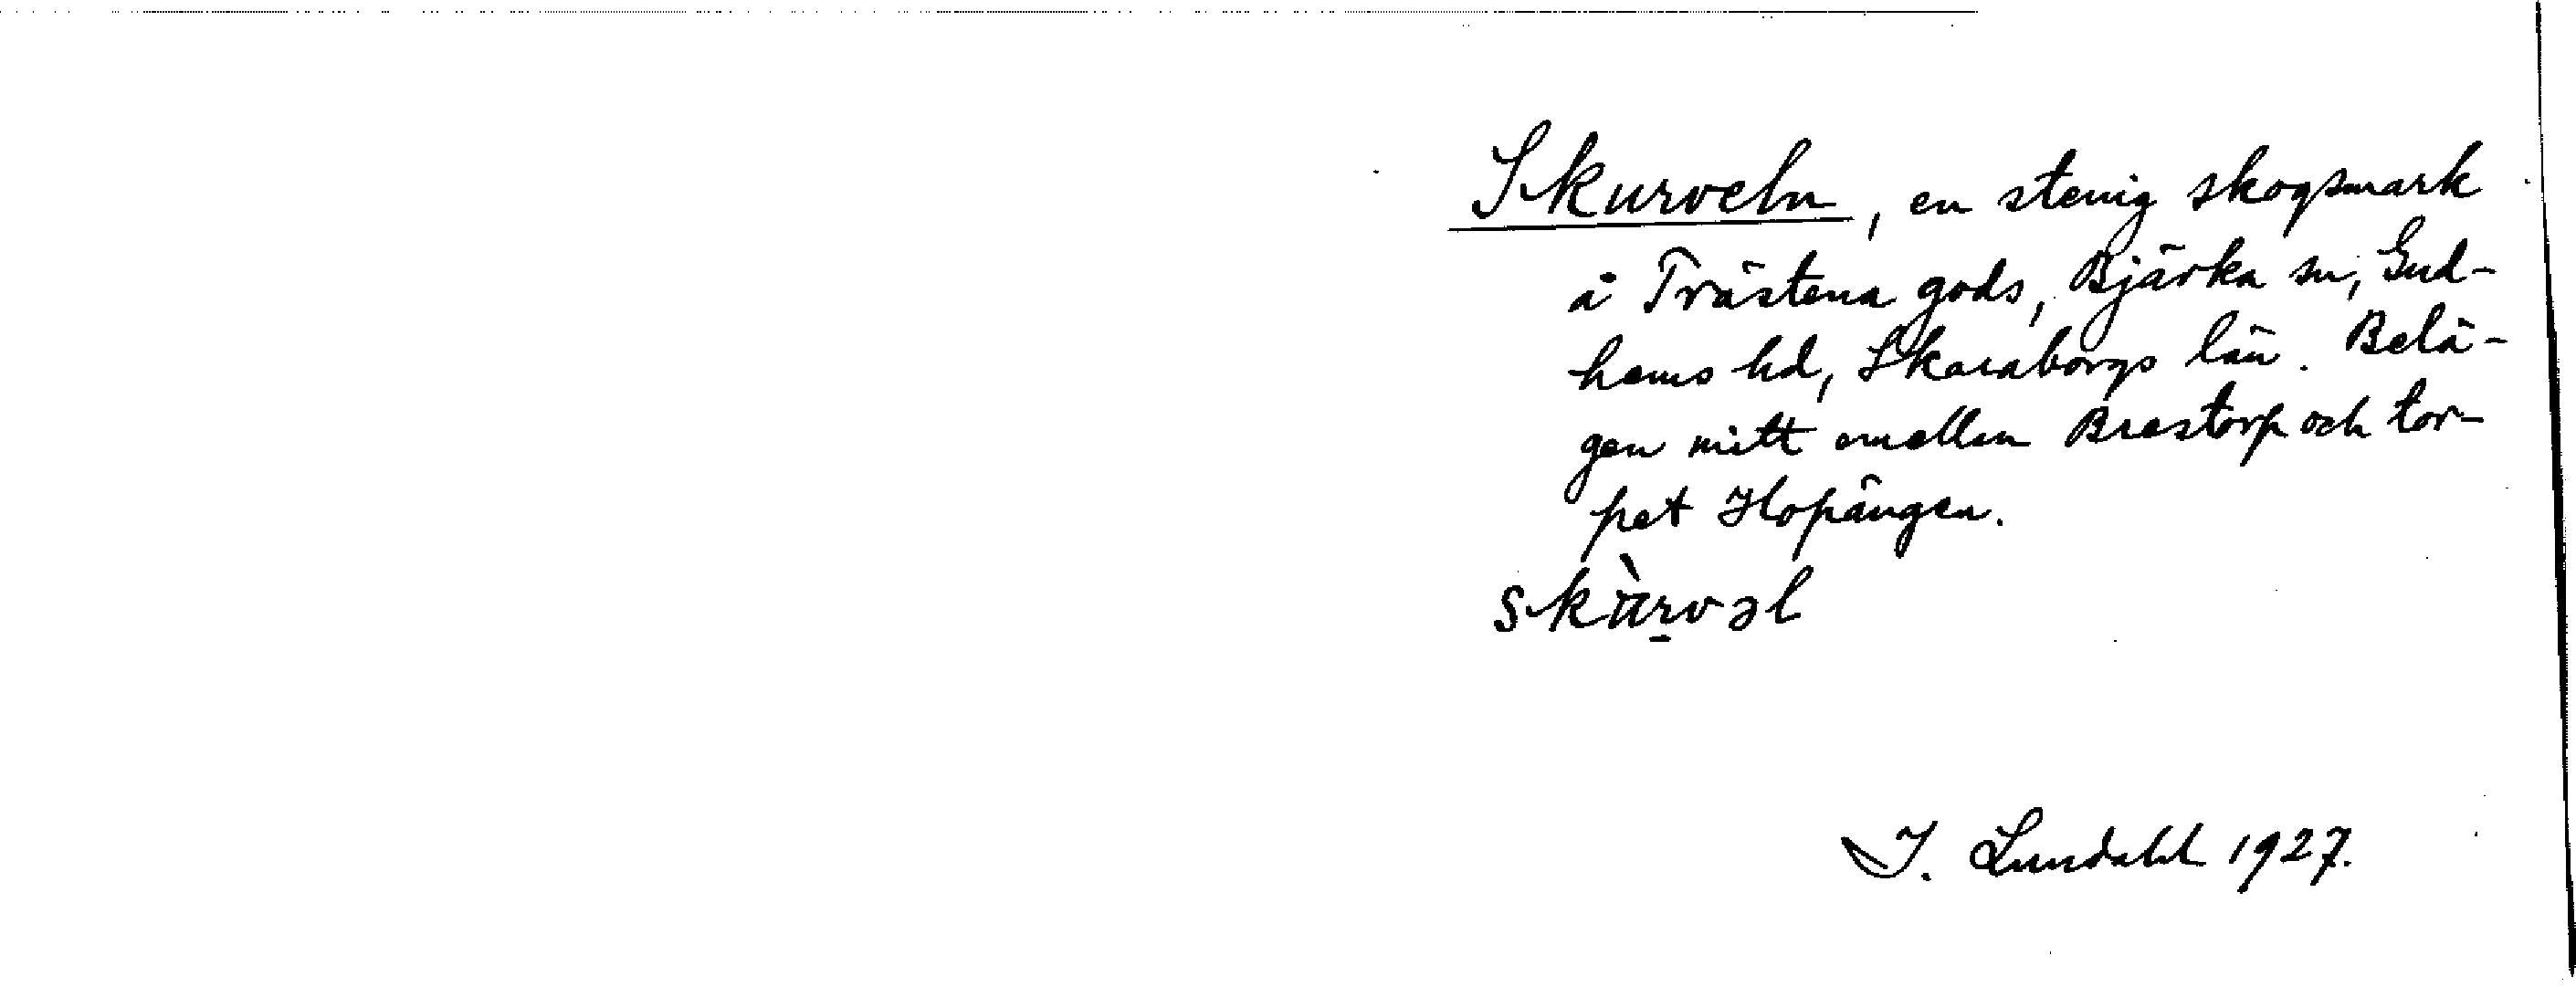 Skurveln, en stenig skogsmark
å Trästena gods, Bjärka sn, Gud-
hems hd, Skaraborgs län. Belä-
gen mitt emellan Brestorp och tor-
pet Hopängen.
skùrvəl
I. Lundahl 1927.